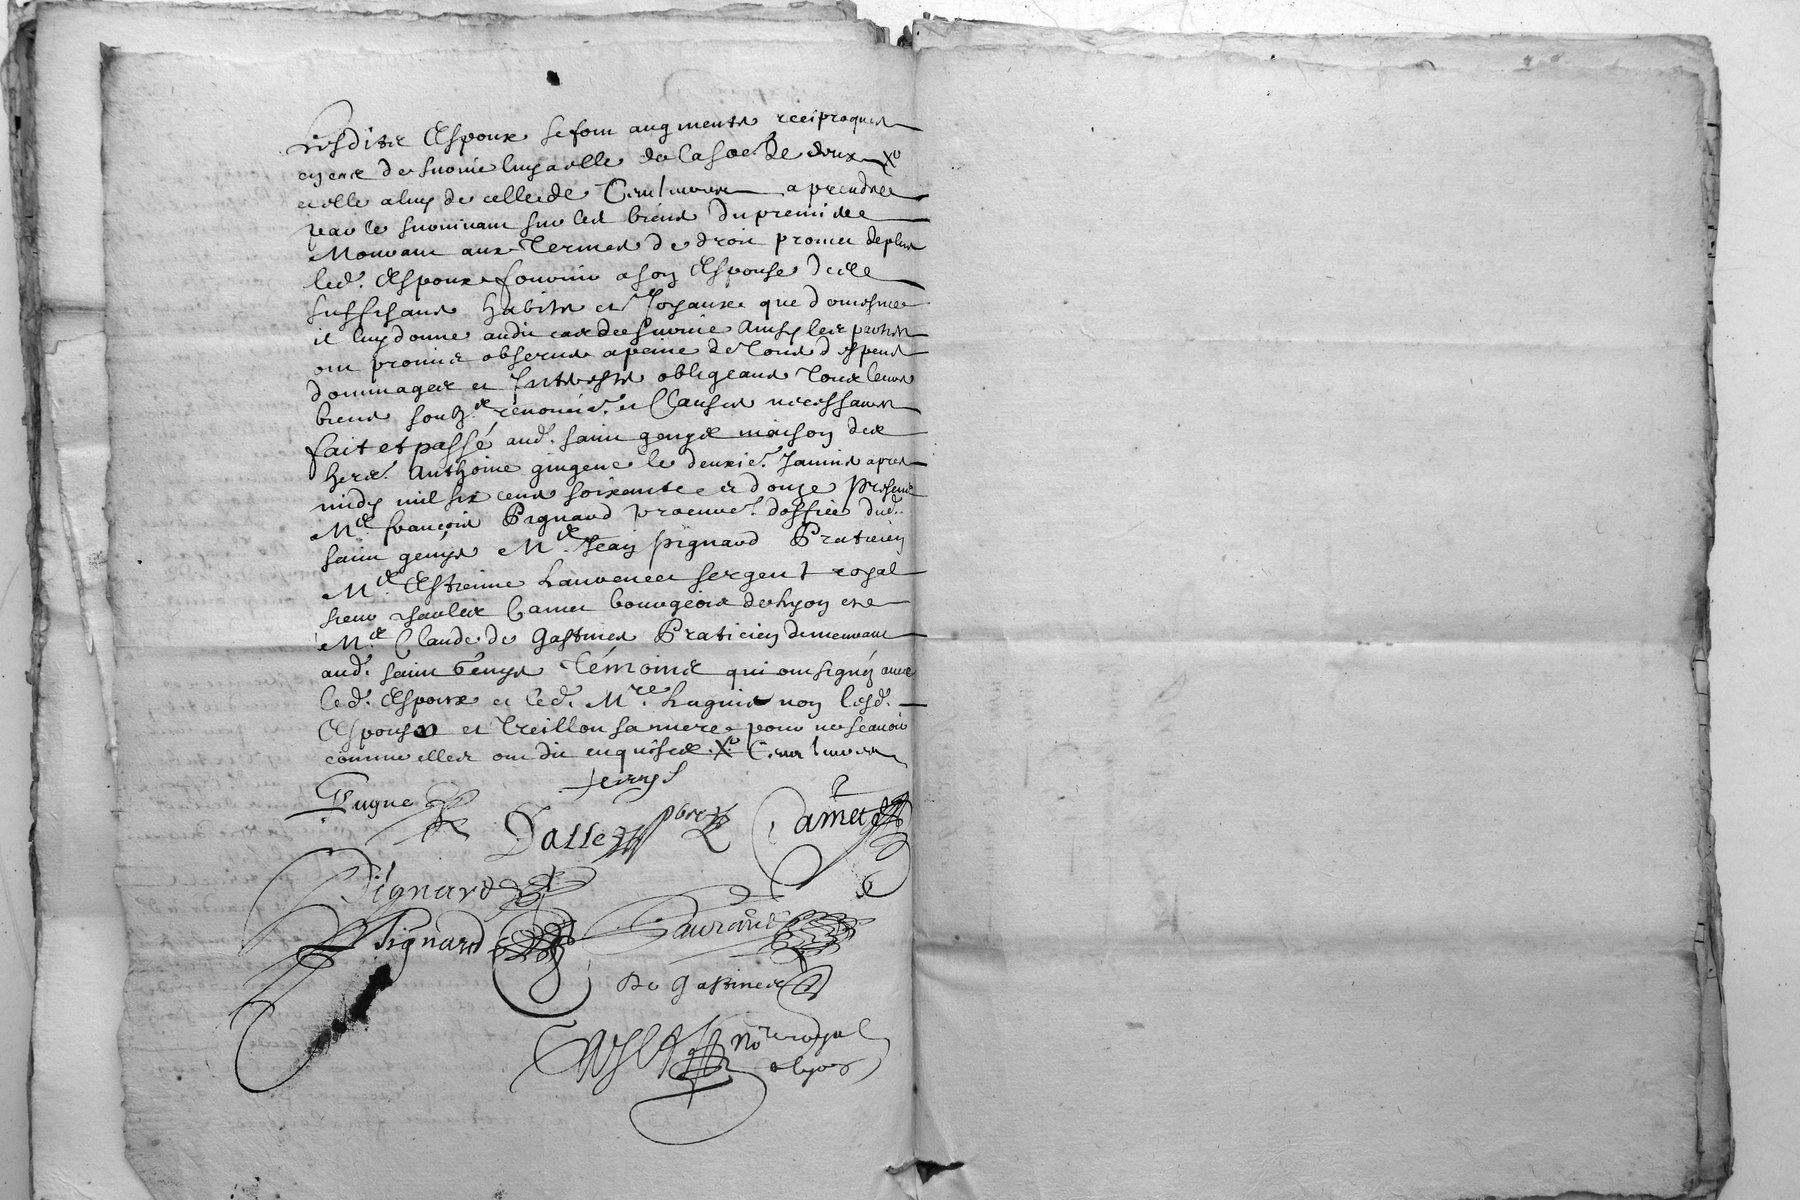 Lesdits Espoux se font augments reciproques
en cas de survie luy a elle de la so.e de deux X.
et elle a luy de celle de Cent livres a prendre
par le survivant sur les biens du premier
Mourant aux Termes de droit promet de plus
led. Espoux fournir a son Espouse de ses
suffisans habits et Joyaux que domesme
il luy donne audit cas de survie Ainsy les parties
ont promis observer a peine de tous despens
dommages et Interests obligeans Tous leurs
biens soubz.on renonci.on et Clauses necessaires
fait et passé aud. saint genys maison des
hers. Anthoine gingene le deuxie. Janvier apres
midy mil six cens soixante et douze presens
M.e françois Pignard procureur. doffice dud.
saint genys M.e Jean pignard Praticien
M.e Estienne Laurencet sergent royal
sieur Camet bourgeois de Lyon et
M.e Claude de Gastines Praticien demeurant
aud. saint Genys Témoins qui ont signé avec
led. Espoux et led. M.re hugnie non lesd.
Espouse et Treillon sa mere pour ne scavoir
comme elles ont dit enquises X. Cent livres
Pugne
Dalle
Camet
Pignard
Pignard
De Gastines
No.re royal
a lyon